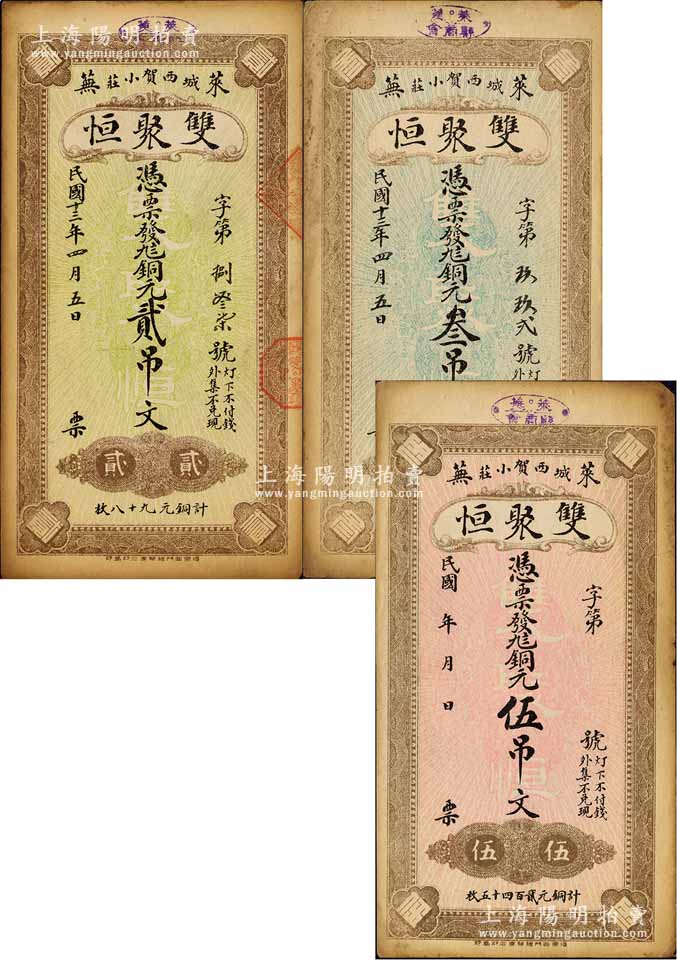 萊蕪
縣商會
萊城西賀小莊蕪
雙聚恒
字第 捌 號
灯下不付錢
外集不兌現
憑票發九八銅元貳吊文
民國十三年四月五日
票
貳 貳
計銅元九十八枚
萊蕪
縣商會
萊城西賀小莊蕪
雙聚恒
字第 玖玖弍 號
憑票發九八銅元叁吊
民國十三年四月五日
萊蕪
縣商會
萊城西賀小莊蕪
雙聚恒
字第 號
灯下不付錢
外集不兌現
憑票發九八銅元伍吊文
民國 年 月 日
票
伍 伍
計銅元貳百四十五枚
上海陽明拍賣
www.yangmingauction.com
上海陽明拍賣
www.yangmingauction.com
上海陽明拍賣
www.yangmingauction.com
上海陽明拍賣
www.yangmingauction.com